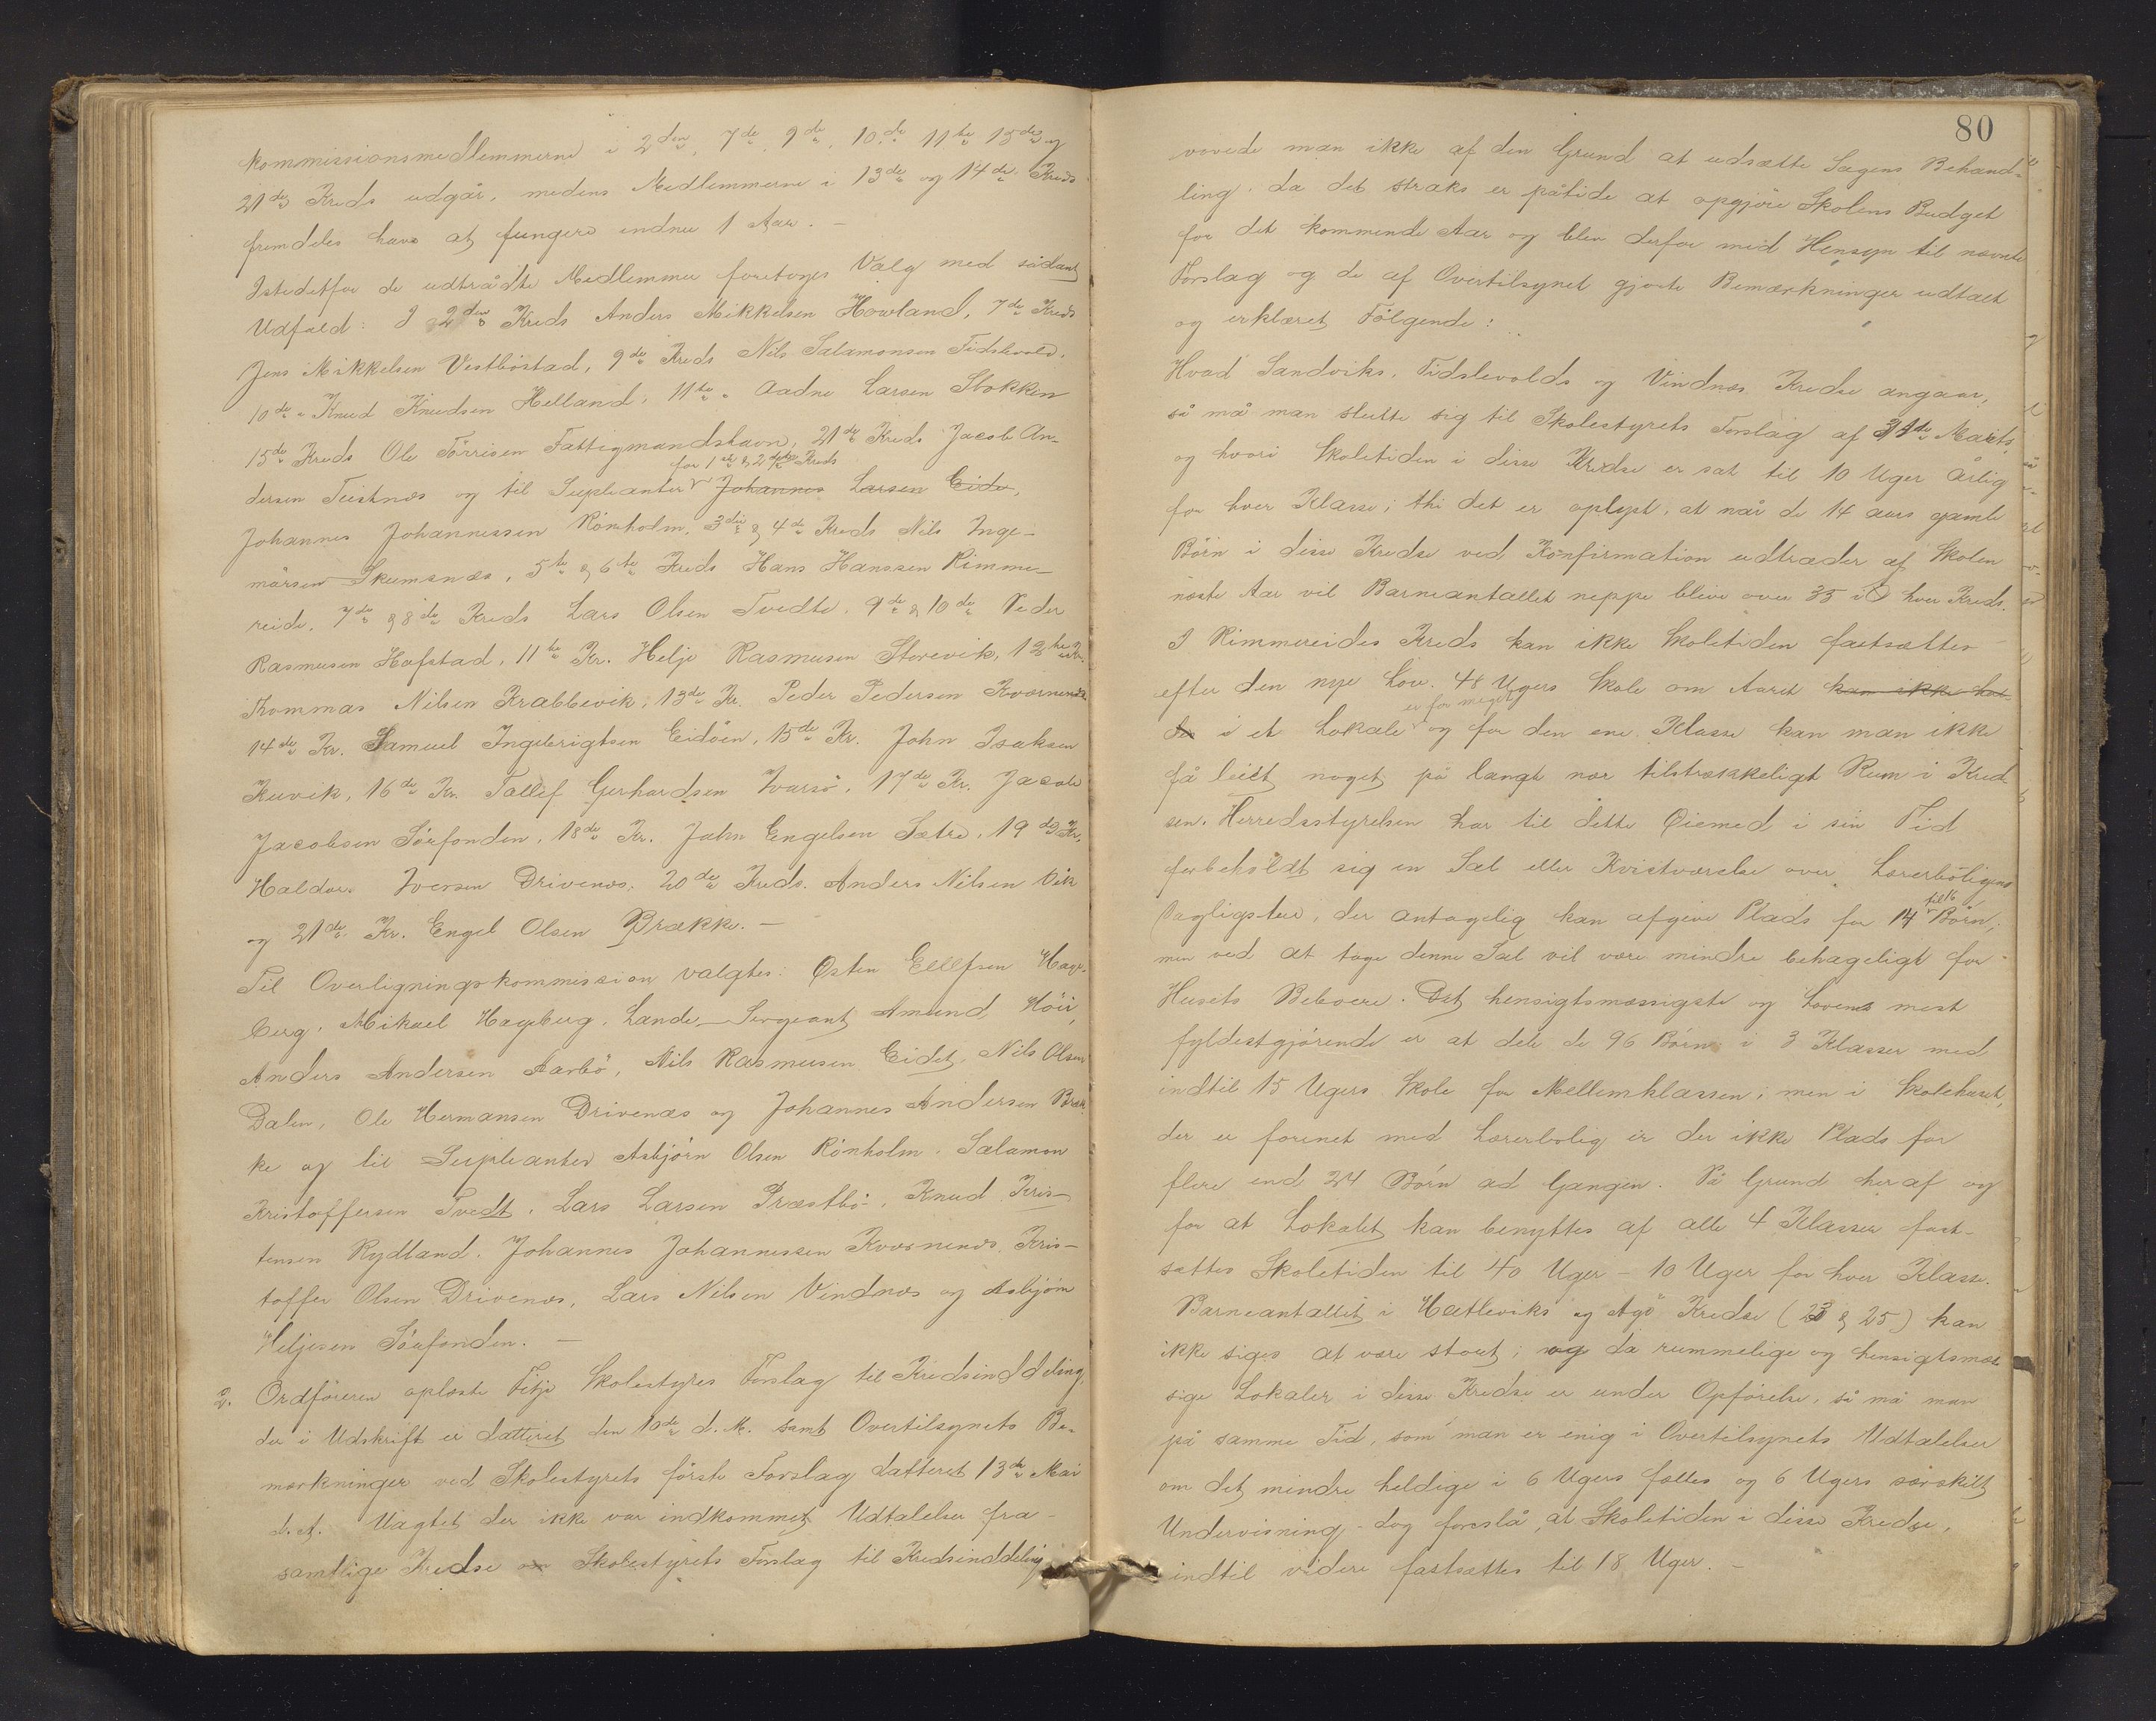 kommissionsmedlemmerne i 2den, 7de, 9de, 10de 11te 15de og
21de Kreds udgår, medens Medlemmerne i 13de og 14de Kreds
fremdeles have at fungere endnu 1 Aar. –
Istedetfor de udtrådte Medlemmer foretoges Valg med sådant
Udfald: I 2den Kreds Anders Mikkelsen Howland, 7de Kreds
Jens Mikkelsen Vestböstad, 9de Kreds Nils Salamonsen Tidslevold,
10de " Knud Knudsen Helland, 11te " Aadne Larsen Stokken
15de Kreds Ole Törrisen Fattigmandshavn, 21de Kreds Jacob An-
for 1ste & 2den Kreds
dersen Teistnæs og til Supleanter Johannes Larsen Eide,
Johannes Johannessen Rönholm, 3die & 4de Kreds Nils Inge-
mårsen Skumsnæs, 5te & 6te Kreds Hans Hanssen Rimme-
reide, 7de & 8de Kreds Lars Olsen Tvedte, 9de & 10de Peder
Rasmusen Hafstad, 11te Kr. Helje Rasmusen Storevik, 12te Kr.
Tommas Nilsen Krabbevik, 13de Kr. Peder Pedersen Kværnenæs
14de Kr. Samuel Ingebrigtsen Eidöen, 15de Kr. John Isaksen
Kuvik, 16de Kr. Tollef Gerhardsen Ivarsö, 17de Kr. Jacob
Jacobsen Sörfonden, 18de Kr. John Engelsen Sætre, 19de Kr.
Haldor Iversen Drivenæs, 20de Kreds. Anders Nilsen Vik
og 21de Kr. Engel Olsen Brække. –
Til Overligningskommission valgtes: Østen Ellefsen Hage-
berg, Mikael Hageberg, Lands-Sergeant Amund Höie,
Anders Andersen Aarbö, Nils Rasmusen Eidet, Nils Olsen
Dalen, Ole Hermansen Drivenæs og Johannes Andersen Bræk-
ke og til Supleanter Asbjörn Olsen Rönholm, Salamon
Kristoffersen Tvedt, Lars Larsen Præstbö, Knud Kris-
tensen Rydland, Johannes Johannessen Kværnenæs, Kris-
toffer Olsen Drivenæs, Lars Nilsen Vindnæs og Asbjörn
Heljesen Sörfonden. –
2. Ordföreren oplæste Fitje Skolestyres Forslag til Kredsinddeling,
der i Udskrift er datteret den 10de d. M. samt Overtilsynets Be-
mærkninger ved Skolestyrets förste Forslag datteret 13de Mai
d. A. Uagtet der ikke var indkommet Udtalelser fra
samtlige Kredse om Skolestyrets Forslag til Kredsinddeling
80
vovede man ikke af den Grund at udsætte Sagens Behand-
ling, da det straks er påtide at opgjöre Skolens Budget
for det kommende Aar og blev derfor med Hensyn til nævnte
Forslag og de af Overtilsynet gjorte Bemærkninger udtalt
og erklæret Fölgende:
Hvad Sandviks, Tidslevolds og Vindnæs Kredse angaar,
så må man slutte sig til Skolestyrets Forslag af 31te Marts,
og hvori Skoletiden i disse Kredse er sat til 10 Uger årlig
for hver Klasse; thi det er oplyst, at når de 14 aars gamle
Börn i disse Kredse ved Konfirmation udtræder af Skolen
næste Aar vil Barneantallet neppe blive over 35 i hver Kreds.
I Rimmereides Kreds kan ikke Skoletiden fastsættes
efter den nye Lov. 48 Ugers Skole om Aaret kan ikke hol-
er for meget
des i et Lokale og for den ene Klasse kan man ikke
få leiet noget på langt nær tilstrækkeligt Rum i Kred-
sen. Herredsstyrelsen har til dette Øiemed i sin Tid
forbeholdt sig en Sal eller Kvistværelse over Lærerboligens
til 16
Dagligstue, der antagelig kan afgive Plads for 14 Börn,
men ved at tage denne Sal vil være mindre behageligt for
Husets Beboere. Det hensigtsmæssigste og Loven mest
fyldestgjörende er at dele de 96 Börn i 3 Klasser med
indtil 15 Ugers Skole for Mellemklassen, men i Skolehuset,
der er forenet med Lærerbolig er der ikke Plads for
flere end 24 Börn ad Gangen. På Grund heraf og
for at Lokalet kan benyttes af alle 4 Klasser fast-
sættes Skoletiden til 40 Uger – 10 Uger for hver Klasse.
Barneantallet i Hatleviks og Agö Kredse (23 & 25) kan
ikke siges at være stort; og da rummelige og hensigtsmæs-
sige Lokaler i disse Kredse er under Opförelse, så må man
på samme Tid, som man er enig i Overtilsynets Udtalelser
om det mindre heldige i 6 Ugers fælles og 6 Ugers særskilt
Undervisning – dog foreslå, at Skoletiden i disse Kredse,
indtil videre fastsættes til 18 Uger. –